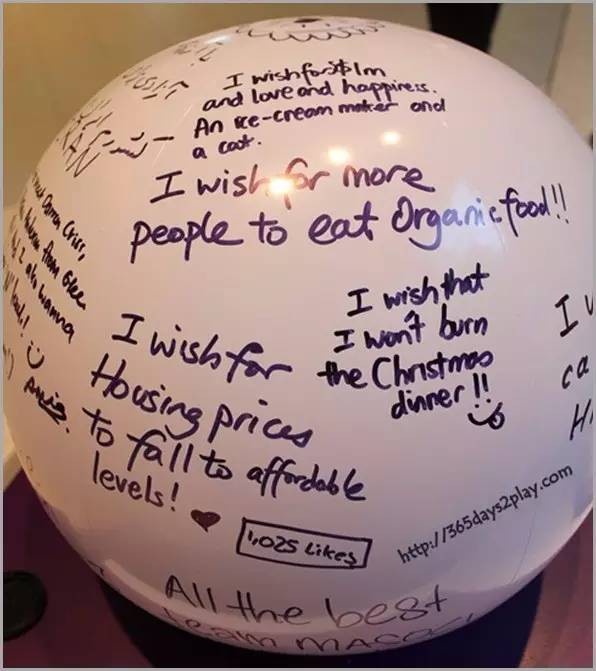 I wish for $1m
and love and happiness.
An ice-cream maker and
a cat.
I wish for more
people to eat Organic food!!
I wish that
I won't burn
the Christmas
dinner!!
I wish for
Housing prices
to fall to affordable
levels!
1,025 Likes
http://365days2play.com
All the best
team
Darren Criss,
from Glee
I also wanna
I
ca